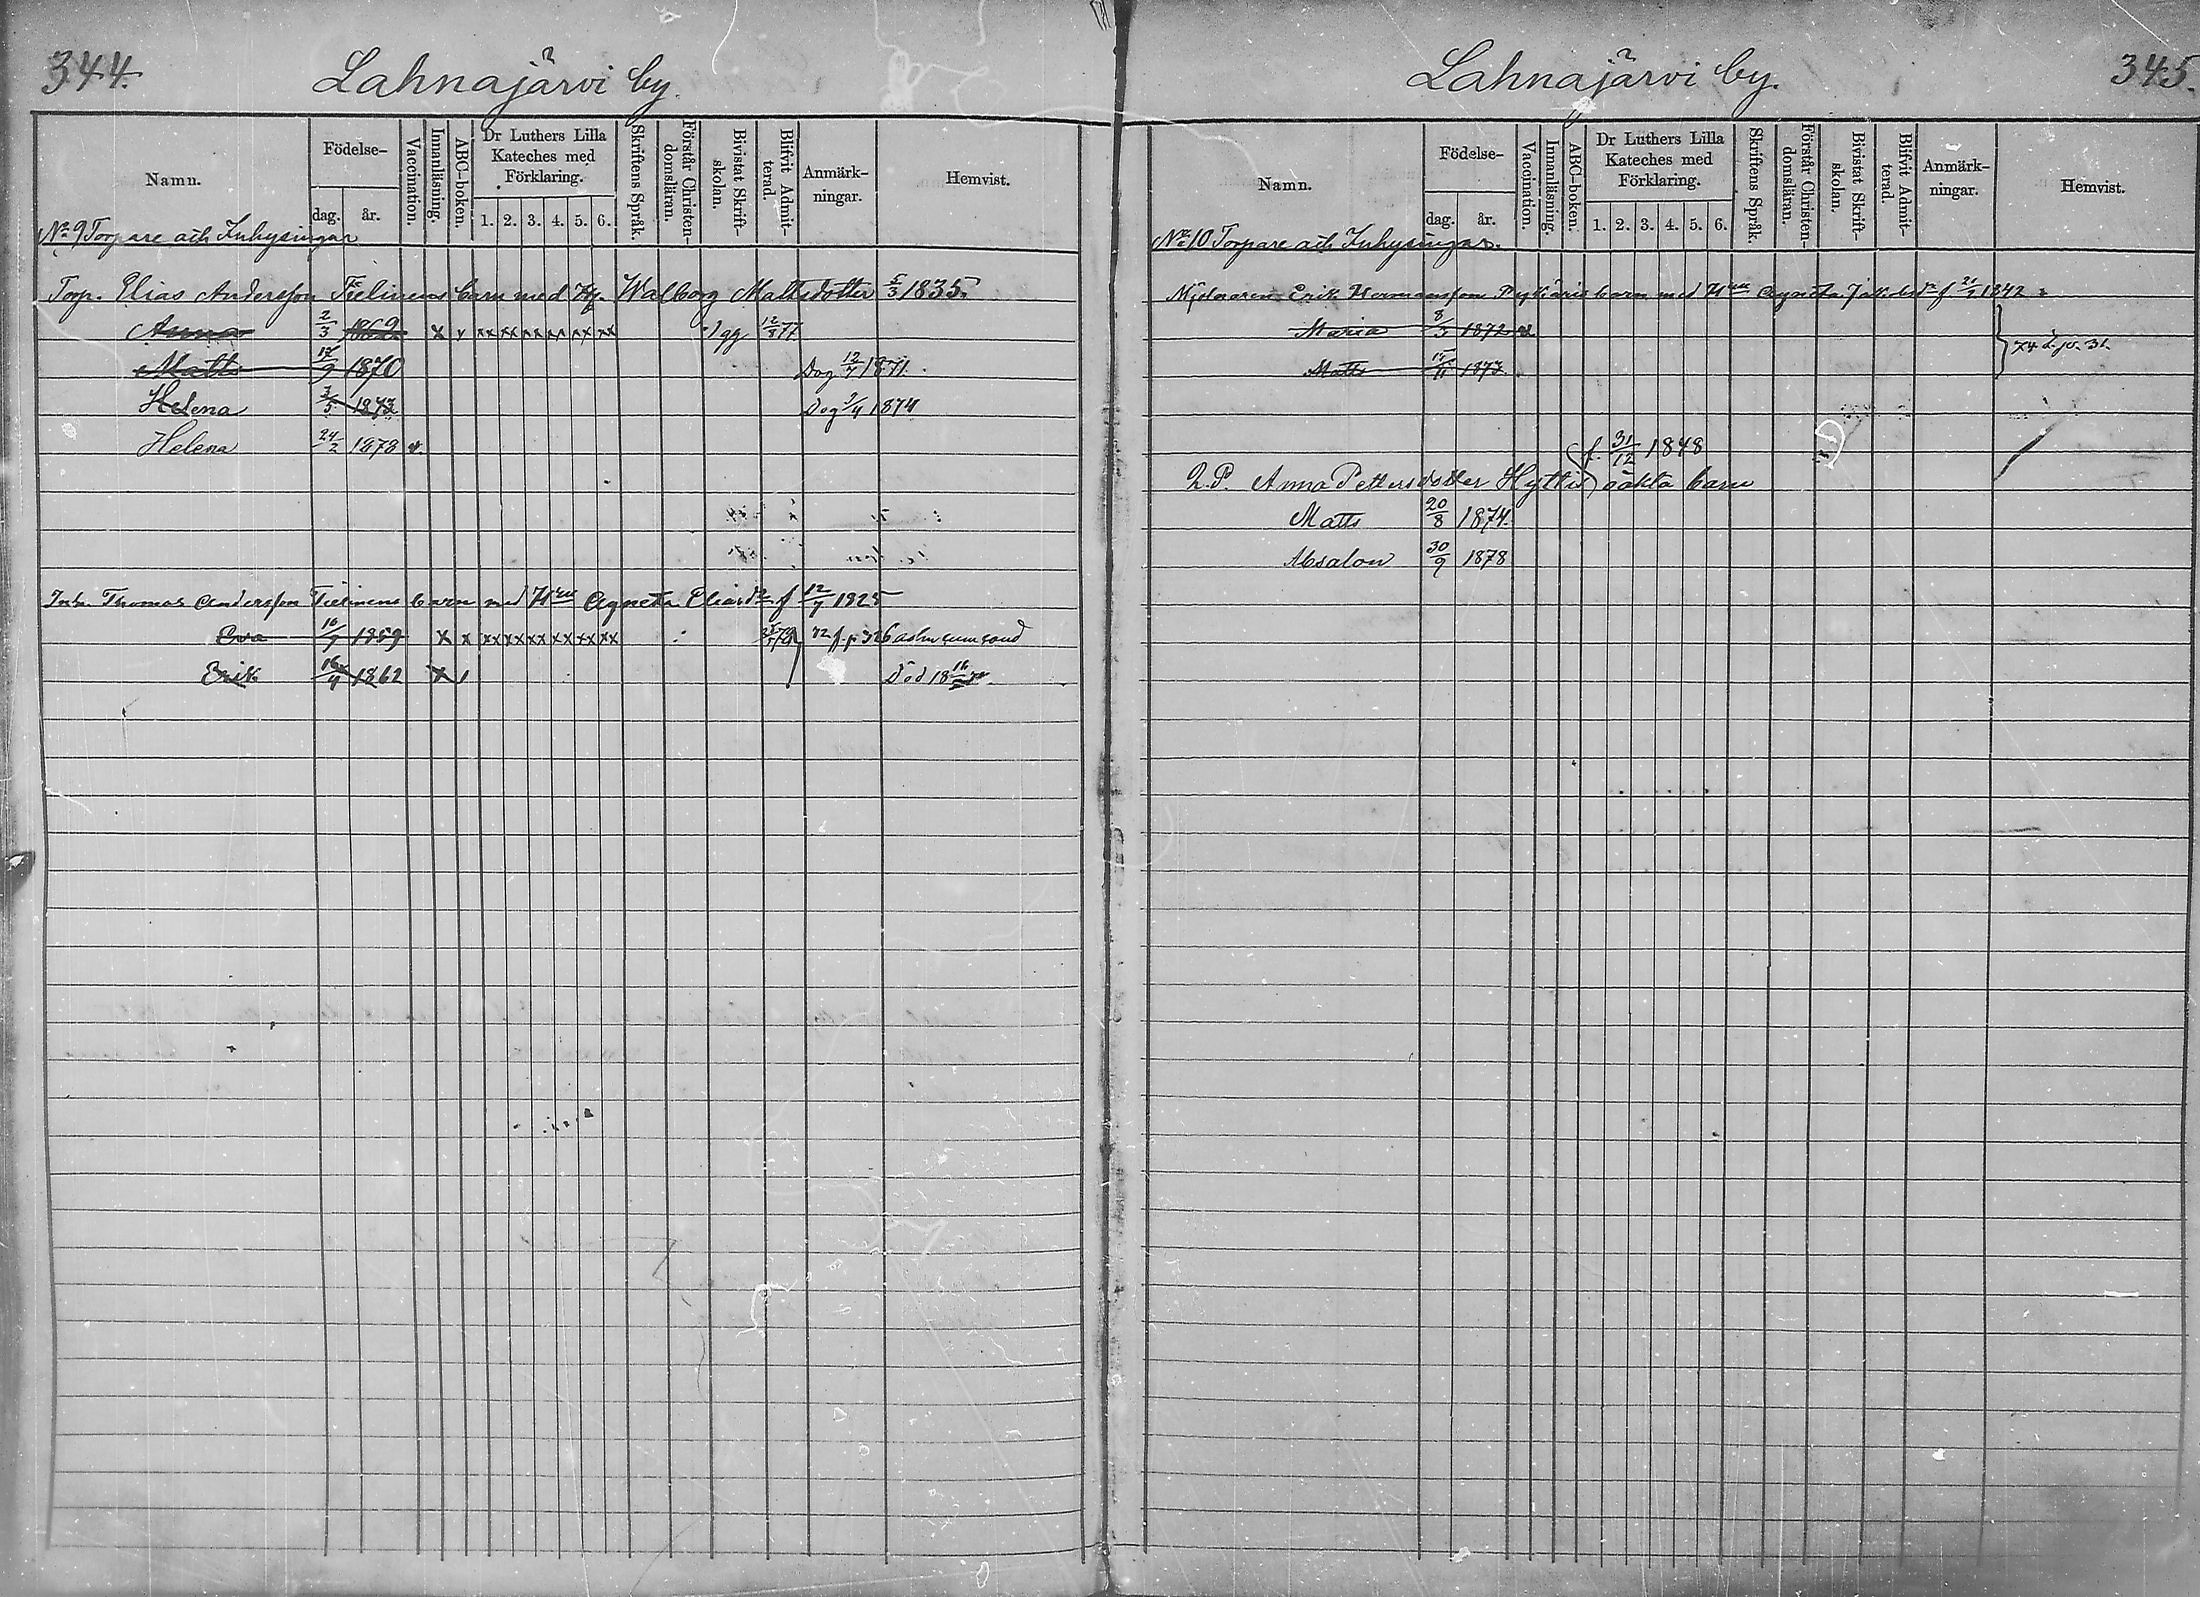 344.
Lahnajärvi by.
Namn.
Födelse-
dag.
år.
Vaccination.
Innanläsning.
ABC-boken.
Dr Luthers Lilla
Kateches med
Förklaring.
1. 2. 3. 4. 5. 6.
Skriftens Språk.
Förstår Christen-
domsläran.
Bivistat Skrift-
skolan.
Blifvit Admit-
terad.
Anmärk-
ningar.
Hemvist.
No 9 Torpare och Inhysingar
Torp. Elias Andersson Tielinens barn med H. Walborg Mattsdotter 5/3 1835.
Anna 2/3 1862 x x xx xx xx xx xx xx 1 gg 12/8 77
Matts 17/9 1870 Dog 12/7 1871.
Helena 3/5 1873 Dog 9/4 1874
Helena 24/2 1878 v.
Inh. Thomas Andersson Tielinens barn med Hru Agneta Eliasdr f 12/7 1825
Eva 16/9 1859 x x xx xx xx xx xx xx
Erik 16/4 1862 x Död 18
345.
Lahnajärvi by.
Namn.
Födelse-
dag.
år.
Vaccination.
Innanläsning.
ABC-boken.
Dr Luthers Lilla
Kateches med
Förklaring.
1. 2. 3. 4. 5. 6.
Skriftens Språk.
Förstår Christen-
domsläran.
Bivistat Skrift-
skolan.
Blifvit Admit-
terad.
Anmärk-
ningar.
Hemvist.
No 10 Torpare och Inhysingar.
Mjölnaren Erik Hermansson barn med Hru Agneta f 21/2 1842
Maria 8/3 1872 v
Matts 1873
f. 31/12 1848
Q. P. Anna Pettersdotter Hyttis oäkta barn
Matts 20/8 1874.
Absalon 30/9 1878